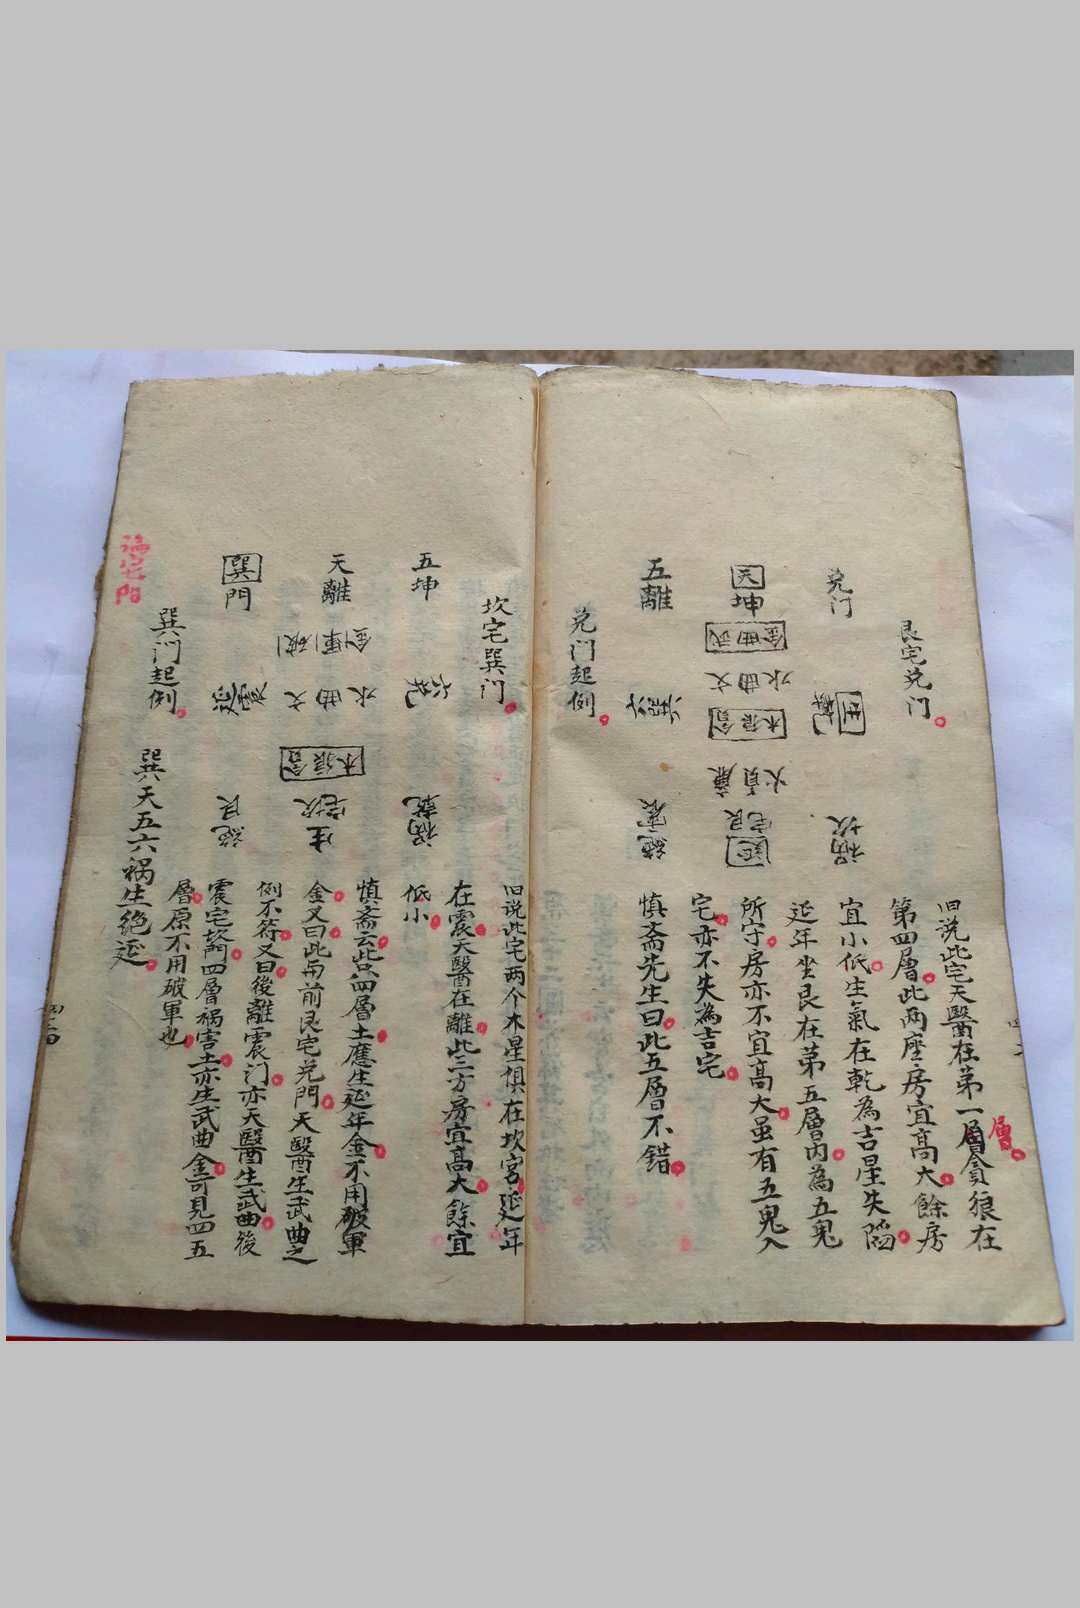 艮宅兑门
兑门
生乾
禍坎
天坤
武曲金
文曲水
貪狼木
廉貞火
艮宅
延
五離
六巽
絶震
旧说此宅天醫在第一層貪狼在
層
第四層此两座房宜髙大餘房
宜小低生氣在乾為吉星失陷
延年坐艮在苐五層内為五鬼
所守房亦不宜髙大虽有五鬼入
宅亦不失為吉宅
慎斎先生曰此五層不錯
兑门起例
坎宅巽门
五坤
六兑
禍乾
天離
破軍金
文曲水
貪狼木
坎宅
生
巽門
延震
絶艮
旧说此宅两个木星俱在坎宮延年
在震天醫在離此三方房宜髙大餘宜
低小
慎斎云此只四層土應生延年金不用破軍
金又曰此与前艮宅兑門天醫生武曲之
例不符又曰後離震门亦天醫生武曲後
震宅乾門四層禍害土亦生武曲金可見四五
層原不用破軍也
巽门起例
巽天五六禍生绝延
陽宅